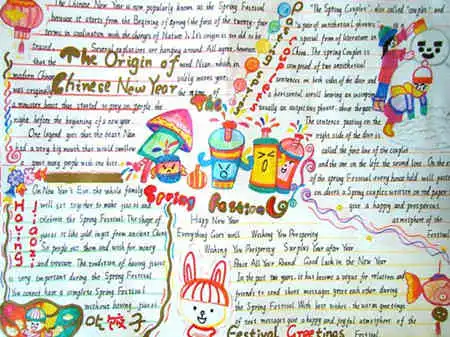 The Chinese New Year is now popularly known as the Spring Festival
because it starts from the Beginning of Spring (the first of the twenty-four
terms in coordination with the changes of Nature). Its origin is too old to be
traced. Several explanations are hanging around. All agree, however,
that the word Nian, which in
modern Chinese
was originally the name of
a monster beast that started to prey on people the
night before the beginning of a new year.
One legend goes that the beast Nian
had a very big mouth that would swallow
a great many people with one bite.
The Origin of
Chinese New Year
The
Spring Festival
Having
jiaozi
On New Year's Eve, the whole family
will get together to make jiaozi and
celebrate the Spring Festival. The shape of
jiaozi is like gold ingot from ancient China.
So people eat them and wish for money
and treasure. The tradition of having jiaozi
is very important during the Spring Festival.
You cannot have a complete Spring Festival
without having jiaozi.
吃饺子
"The Spring Couplet", also called "couplet" and
special form of literature in
China. The Spring couplet is
composed of two antithetical
sentences on both sides of the door and
a horizontal scroll bearing an inscription,
usually an auspicious phrase, above the gate.
The sentence pasting on the
right side of the door is
called the first line of the couplet
and the one on the left the second line. On the eve
of the Spring Festival, every household will paste
on doors a Spring couplet written on red paper
give a happy and prosperous
atmosphere of the
Festival.
Happy New Year
Everything Goes well Wishing You Prosperity
Wishing You Prosperity Surplus Year after Year
Peace All Year Round Good Luck in the New Year
In the past two years, it has become a vogue for relatives and
friends to send short messages greet each other during
the Spring Festival. With best wishes, the warm greetings
of text messages give a happy and joyful atmosphere of the
Festival Greetings
Festival.